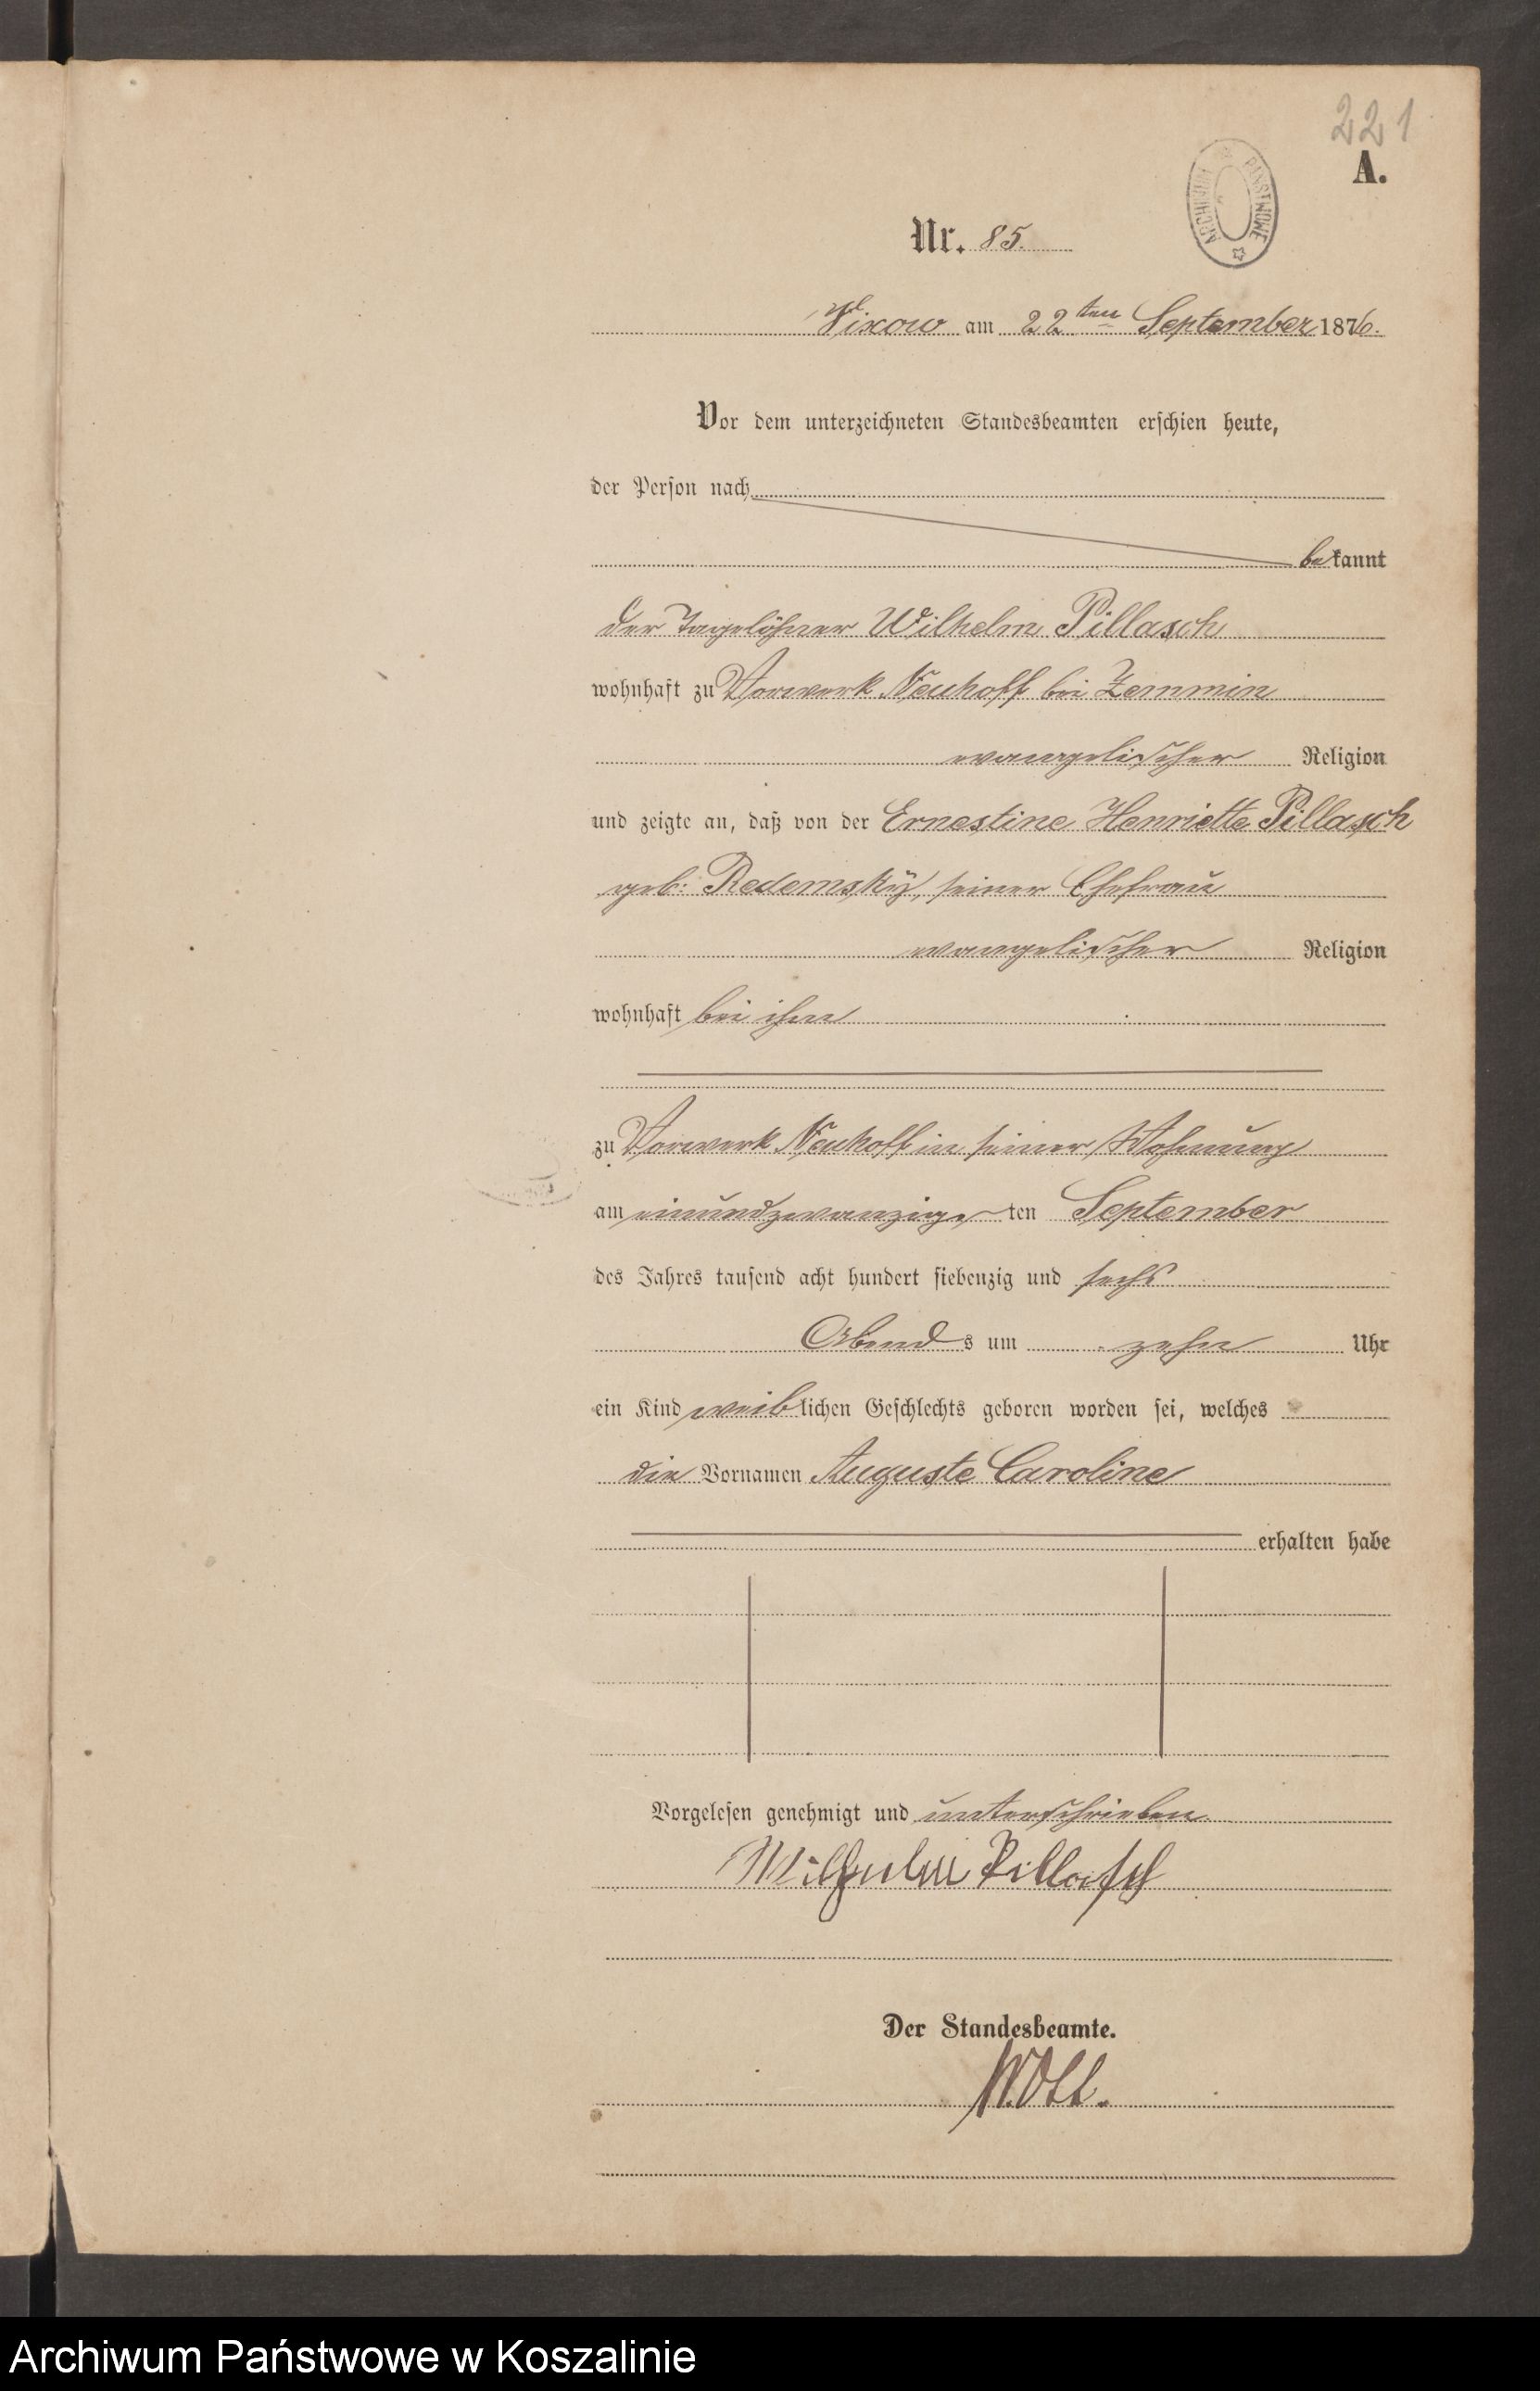 221
A.
ARCHIWUM PAŃSTWOWE
Nr. 85.
Wixow am 22ten September 1876.
Vor dem unterzeichneten Standesbeamten erschien heute,
der Person nach
bekannt
der Tagelöhner Wilhelm Pillasch
wohnhaft zu Vorwerk Neuhoff bei Zemmin
evangelischer Religion
und zeigte an, daß von der Ernestine Henriette Pillasch
geb: Redemsky, seiner Ehefrau
evangelischer Religion
wohnhaft bei ihm
zu Vorwerk Neuhoff in seiner Wohnung
am einundzwanzigsten September
des Jahres tausend acht hundert siebenzig und sechs
Abends um zehn Uhr
ein Kind weiblichen Geschlechts geboren worden sei, welches
die Vornamen Auguste Caroline
erhalten habe
Vorgelesen genehmigt und unterschrieben
Wilhelm Pillasch
Der Standesbeamte.
Archiwum Państwowe w Koszalinie